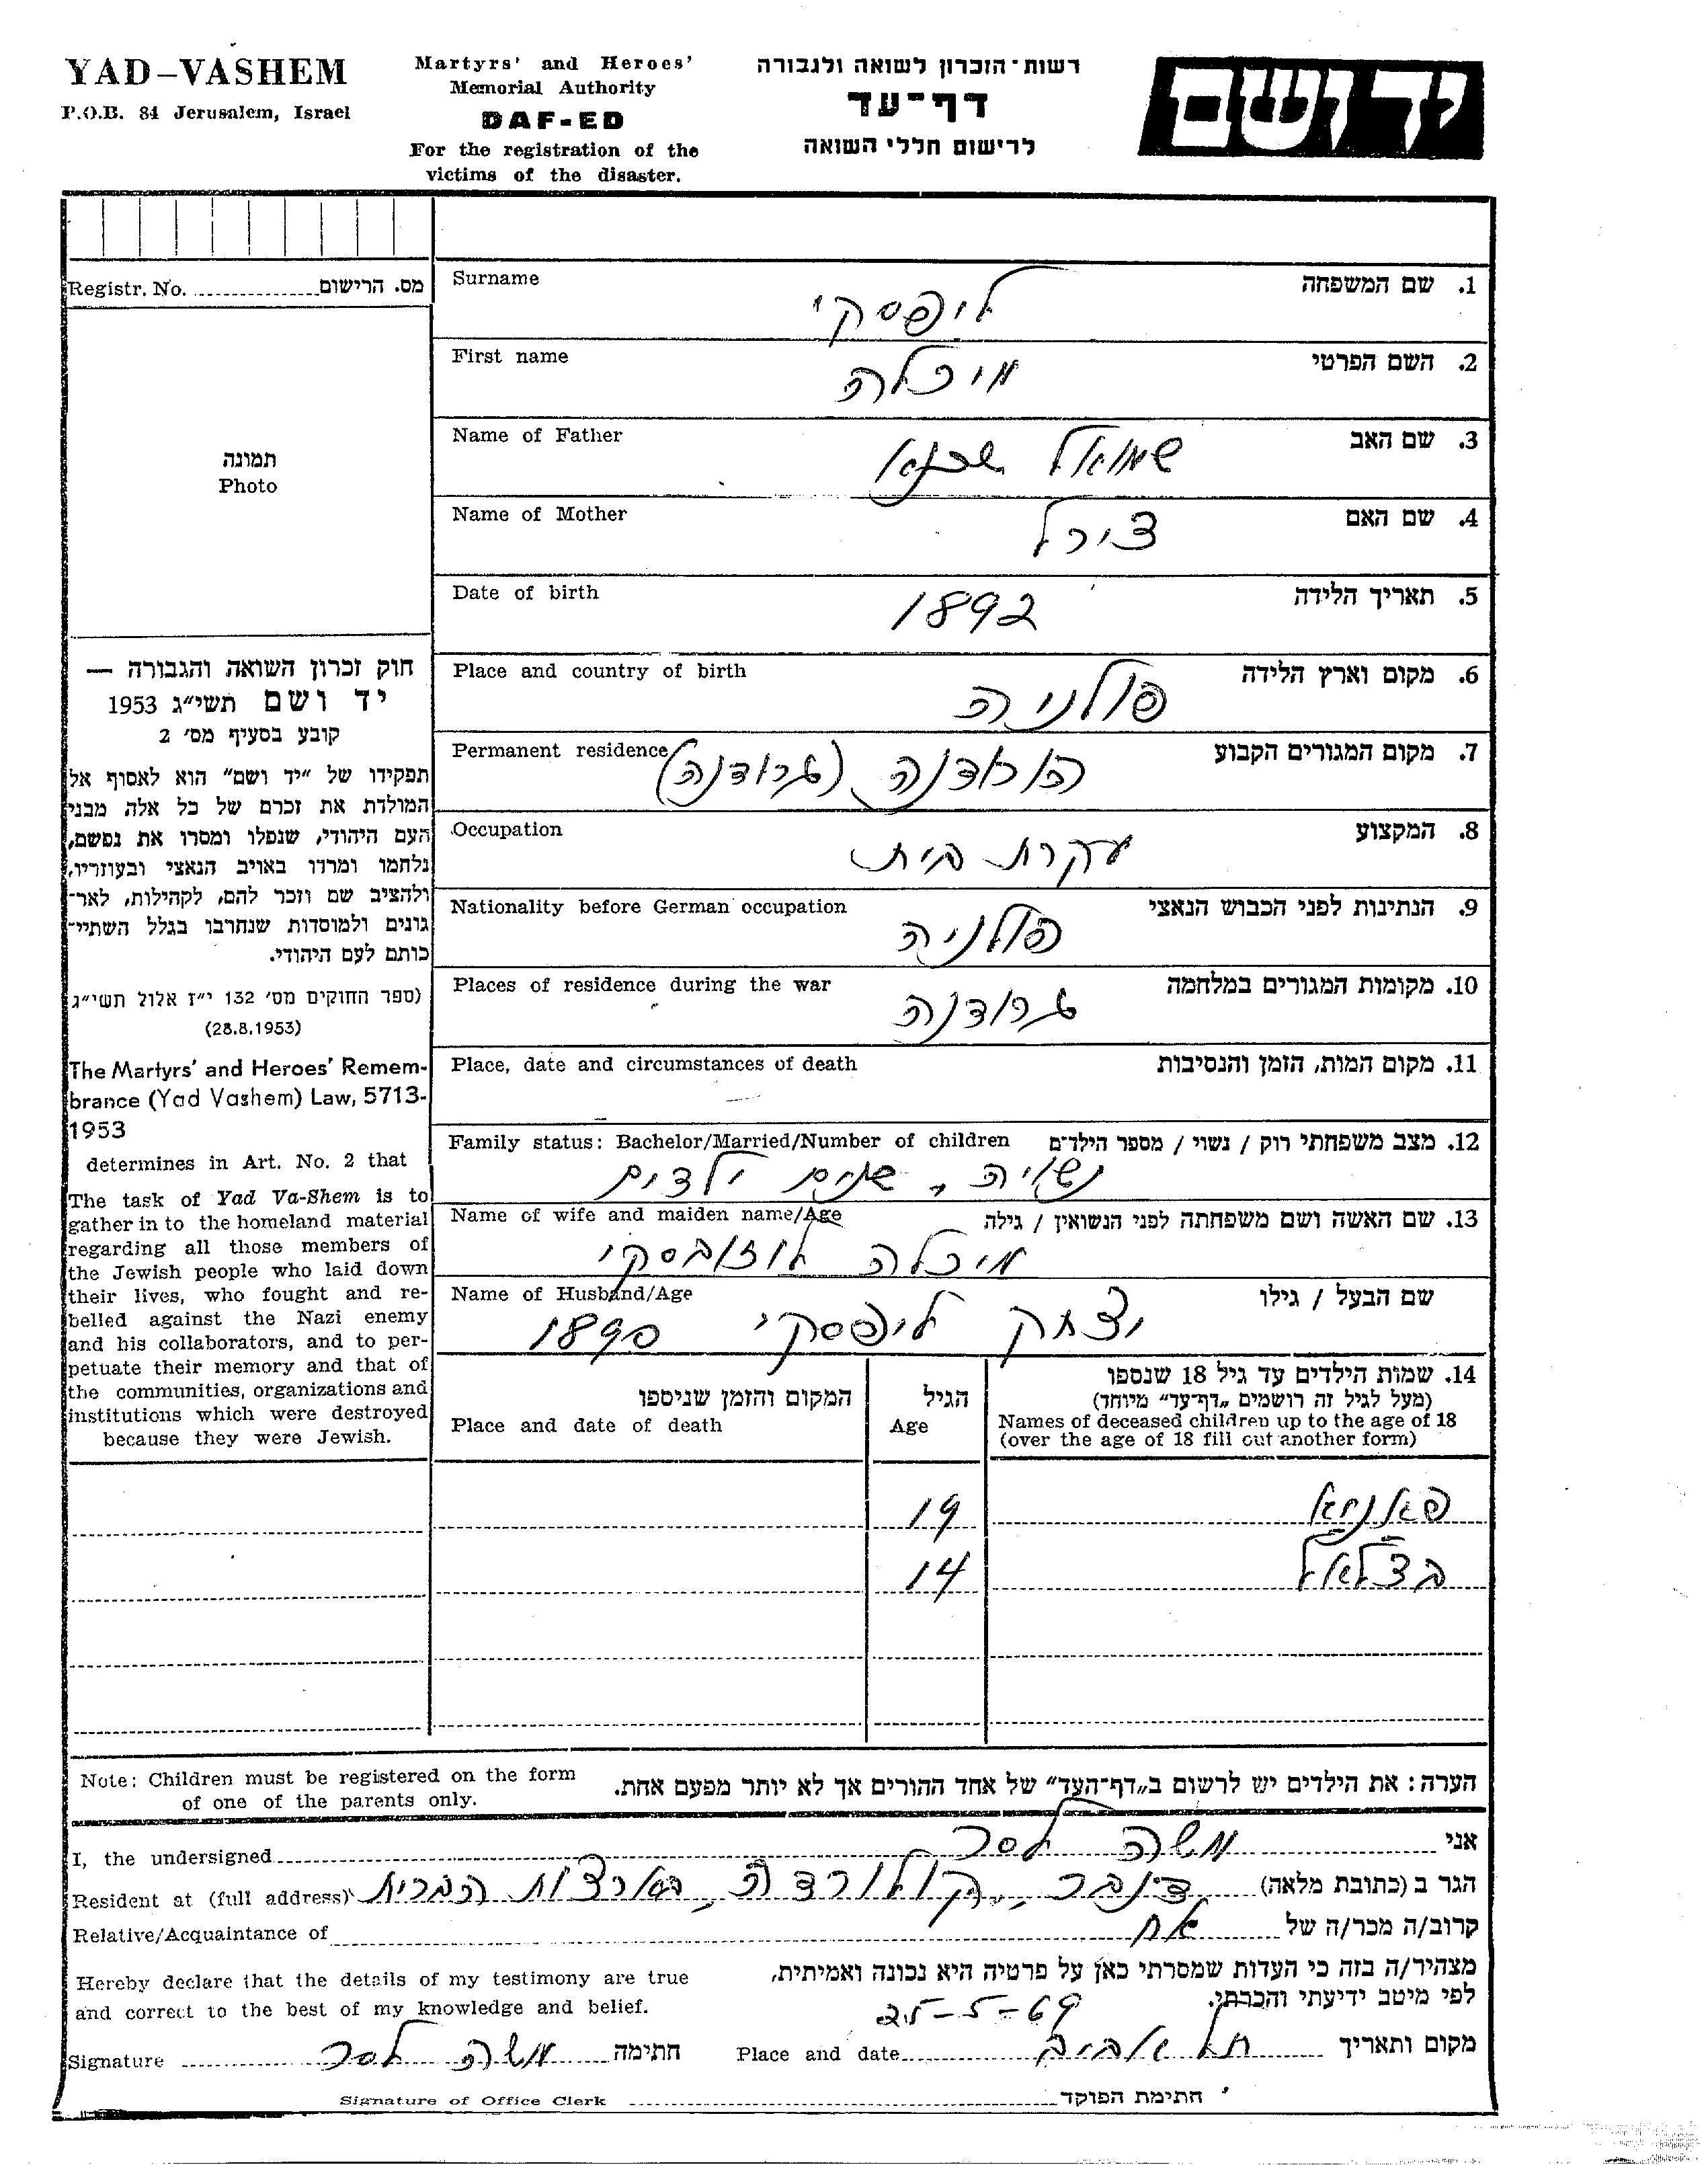 YAD-VASHEM
P.O.B. 84 Jerusalem, Israel
Martyrs' and Heroes'
Memorial Authority
DAF-ED
For the registration of the
victims of the disaster.
רשות־הזכרון לשואה ולגבורה
דף־עד
לרישום חללי השואה
יד ושם
Registr. No. מס. הרישום
תמונה
Photo
חוק זכרון השואה והגבורה —
יד ושם תשי״ג 1953
קובע בסעיף מס׳ 2
תפקידו של ״יד ושם״ הוא לאסוף אל
המולדת את זכרם של כל אלה מבני
העם היהודי, שנפלו ומסרו את נפשם,
נלחמו ומרדו באויב הנאצי ובעוזריו,
ולהציב שם וזכר להם, לקהילות, לאר־
גונים ולמוסדות שנחרבו בגלל השתיי־
כותם לעם היהודי.
(ספר החוקים מס׳ 132 י״ז אלול תשי״ג
(28.8.1953)
The Martyrs' and Heroes' Remem-
brance (Yad Vashem) Law, 5713-
1953
determines in Art. No. 2 that
The task of Yad Va-Shem is to
gather in to the homeland material
regarding all those members of
the Jewish people who laid down
their lives, who fought and re-
belled against the Nazi enemy
and his collaborators, and to per-
petuate their memory and that of
the communities, organizations and
institutions which were destroyed
because they were Jewish.
Surname ליפסקי 1. שם המשפחה
First name מיכלה 2. השם הפרטי
Name of Father שמואל שכנא 3. שם האב
Name of Mother צירל 4. שם האם
Date of birth 1892 5. תאריך הלידה
Place and country of birth פולניה 6. מקום וארץ הלידה
Permanent residence הוראדנה (גרודנה) 7. מקום המגורים הקבוע
Occupation עקרת בית 8. המקצוע
Nationality before German occupation פולניה 9. הנתינות לפני הכבוש הנאצי
Places of residence during the war גרודנה 10. מקומות המגורים במלחמה
Place, date and circumstances of death — 11. מקום המות, הזמן והנסיבות
Family status: Bachelor/Married/Number of children 12. מצב משפחתי רוק / נשוי / מספר הילדים
נשויה, שנים ילדים
Name of wife and maiden name/Age 13. שם האשה ושם משפחתה לפני הנשואין / גילה
מיכלה לוזובסקי
Name of Husband/Age שם הבעל / גילו
יצחק ליפסקי 1890
14. שמות הילדים עד גיל 18 שנספו
(מעל לגיל זה רושמים „דף־עד״ מיוחד)
Names of deceased children up to the age of 18
(over the age of 18 fill out another form)
הגיל
Age
המקום והזמן שניספו
Place and date of death
פאניא 19
בצלאל 14
Note: Children must be registered on the form
of one of the parents only.
הערה: את הילדים יש לרשום ב„דף־העד״ של אחד ההורים אך לא יותר מפעם אחת.
I, the undersigned משה לסר אני
Resident at (full address) דינבר, קולורדה, בארצות הברית הגר ב (כתובת מלאה)
Relative/Acquaintance of אח קרוב/ה מכר/ה של
Hereby declare that the details of my testimony are true
and correct to the best of my knowledge and belief.
מצהיר/ה בזה כי העדות שמסרתי כאן על פרטיה היא נכונה ואמיתית,
לפי מיטב ידיעתי והכרתי.
25-5-69
Signature משה לסר חתימה Place and date תל אביב מקום ותאריך
Signature of Office Clerk חתימת הפוקד